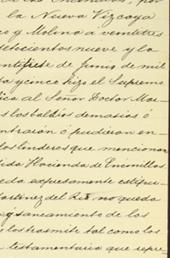 la Nueva Vizcaya
y Molino a veintitres
setecientos nueve y la
de Junio de mil
ta y cinco hizo el Supremo
al Señor Doctor Mar
los baldíos demasías ó
ó pudieron en
los linderos que mencionan
Hacienda de Encinillas
eda expresamente estipu
Martinez del Rio no queda
saneamiento de los
los trasmite tal como los
testamentaria que repre